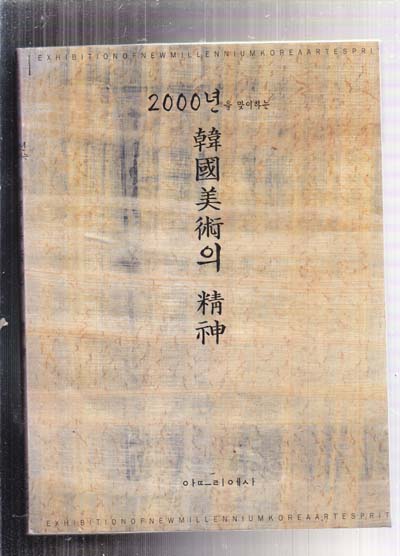 EXHIBITIONOFNEWMILLENNIUMKOREAARTESPRIT
2000년을 맞이하는
韓國美術의 精神
아뜨리에사
EXHIBITIONOFNEWMILLENNIUMKOREAARTESPRIT